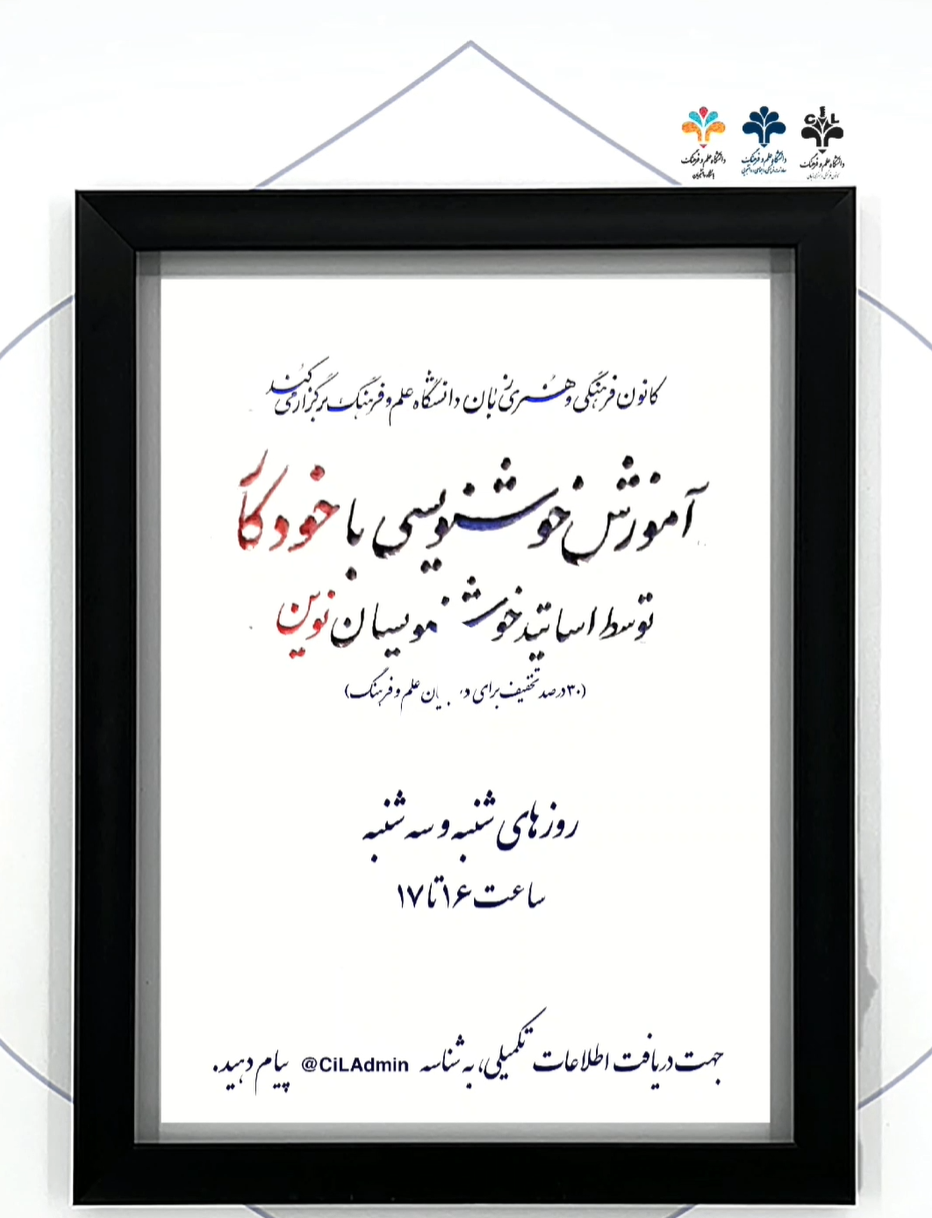 CiL
دانشگاه علم و فرهنگ
دانشگاه علم و فرهنگ
دانشگاه علم و فرهنگ
کانون فرهنگی و هنری زبان دانشگاه علم و فرهنگ برگزار می کند
آموزش خوشنویسی با خودکار
توسط اساتید خوشنویسان نوین
(۳۰ درصد تخفیف برای علم و فرهنگ)
روزهای شنبه و سه شنبه
ساعت ۱۶ تا ۱۷
جهت دریافت اطلاعات تکمیلی، به شناسه @CiLAdmin پیام دهید.